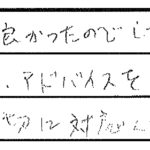 良かったのでし
、アドバイスを
切に対応し